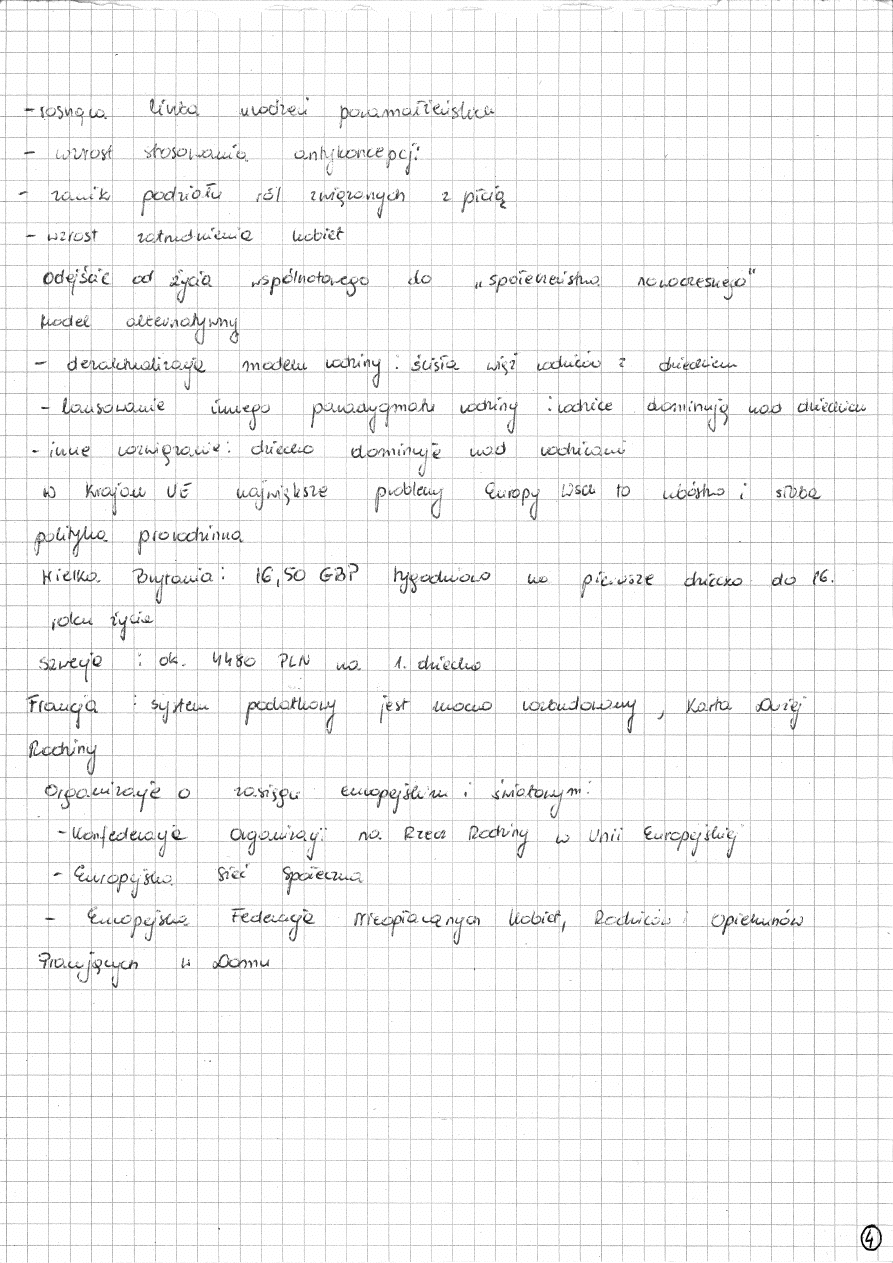 - rosnąca liczba urodzeń pozamałżeńskich
- wzrost stosowania antykoncepcji
- zanik podziału ról związanych z płcią
- wzrost zatrudnienia kobiet
Odejście od życia wspólnotowego do „społeczeństwa nowoczesnego"
Model alternatywny
- dezaktualizacja modelu rodziny : ścisła więź rodziców z dzieckiem
- lansowanie innego paradygmatu rodziny : rodzice dominują nad dzieckiem
- inne rozwiązanie : dziecko dominuje nad rodzicami
W krajach UE największe problemy Europy Wsch to ubóstwo i słaba
polityka prorodzinna
Wielka Brytania : 16,50 GBP tygodniowo na pierwsze dziecko do 16.
roku życia
Szwecja : ok. 4480 PLN na 1. dziecko
Francja : system podatkowy jest mocno rozbudowany, Karta Dużej
Rodziny
Organizacje o zasięgu europejskim i światowym :
- Konfederacja Organizacji na Rzecz Rodziny w Unii Europejskiej
- Europejska Sieć Społeczna
- Europejska Federacja Nieopłacanych Kobiet, Rodziców i Opiekunów
Pracujących w Domu
4